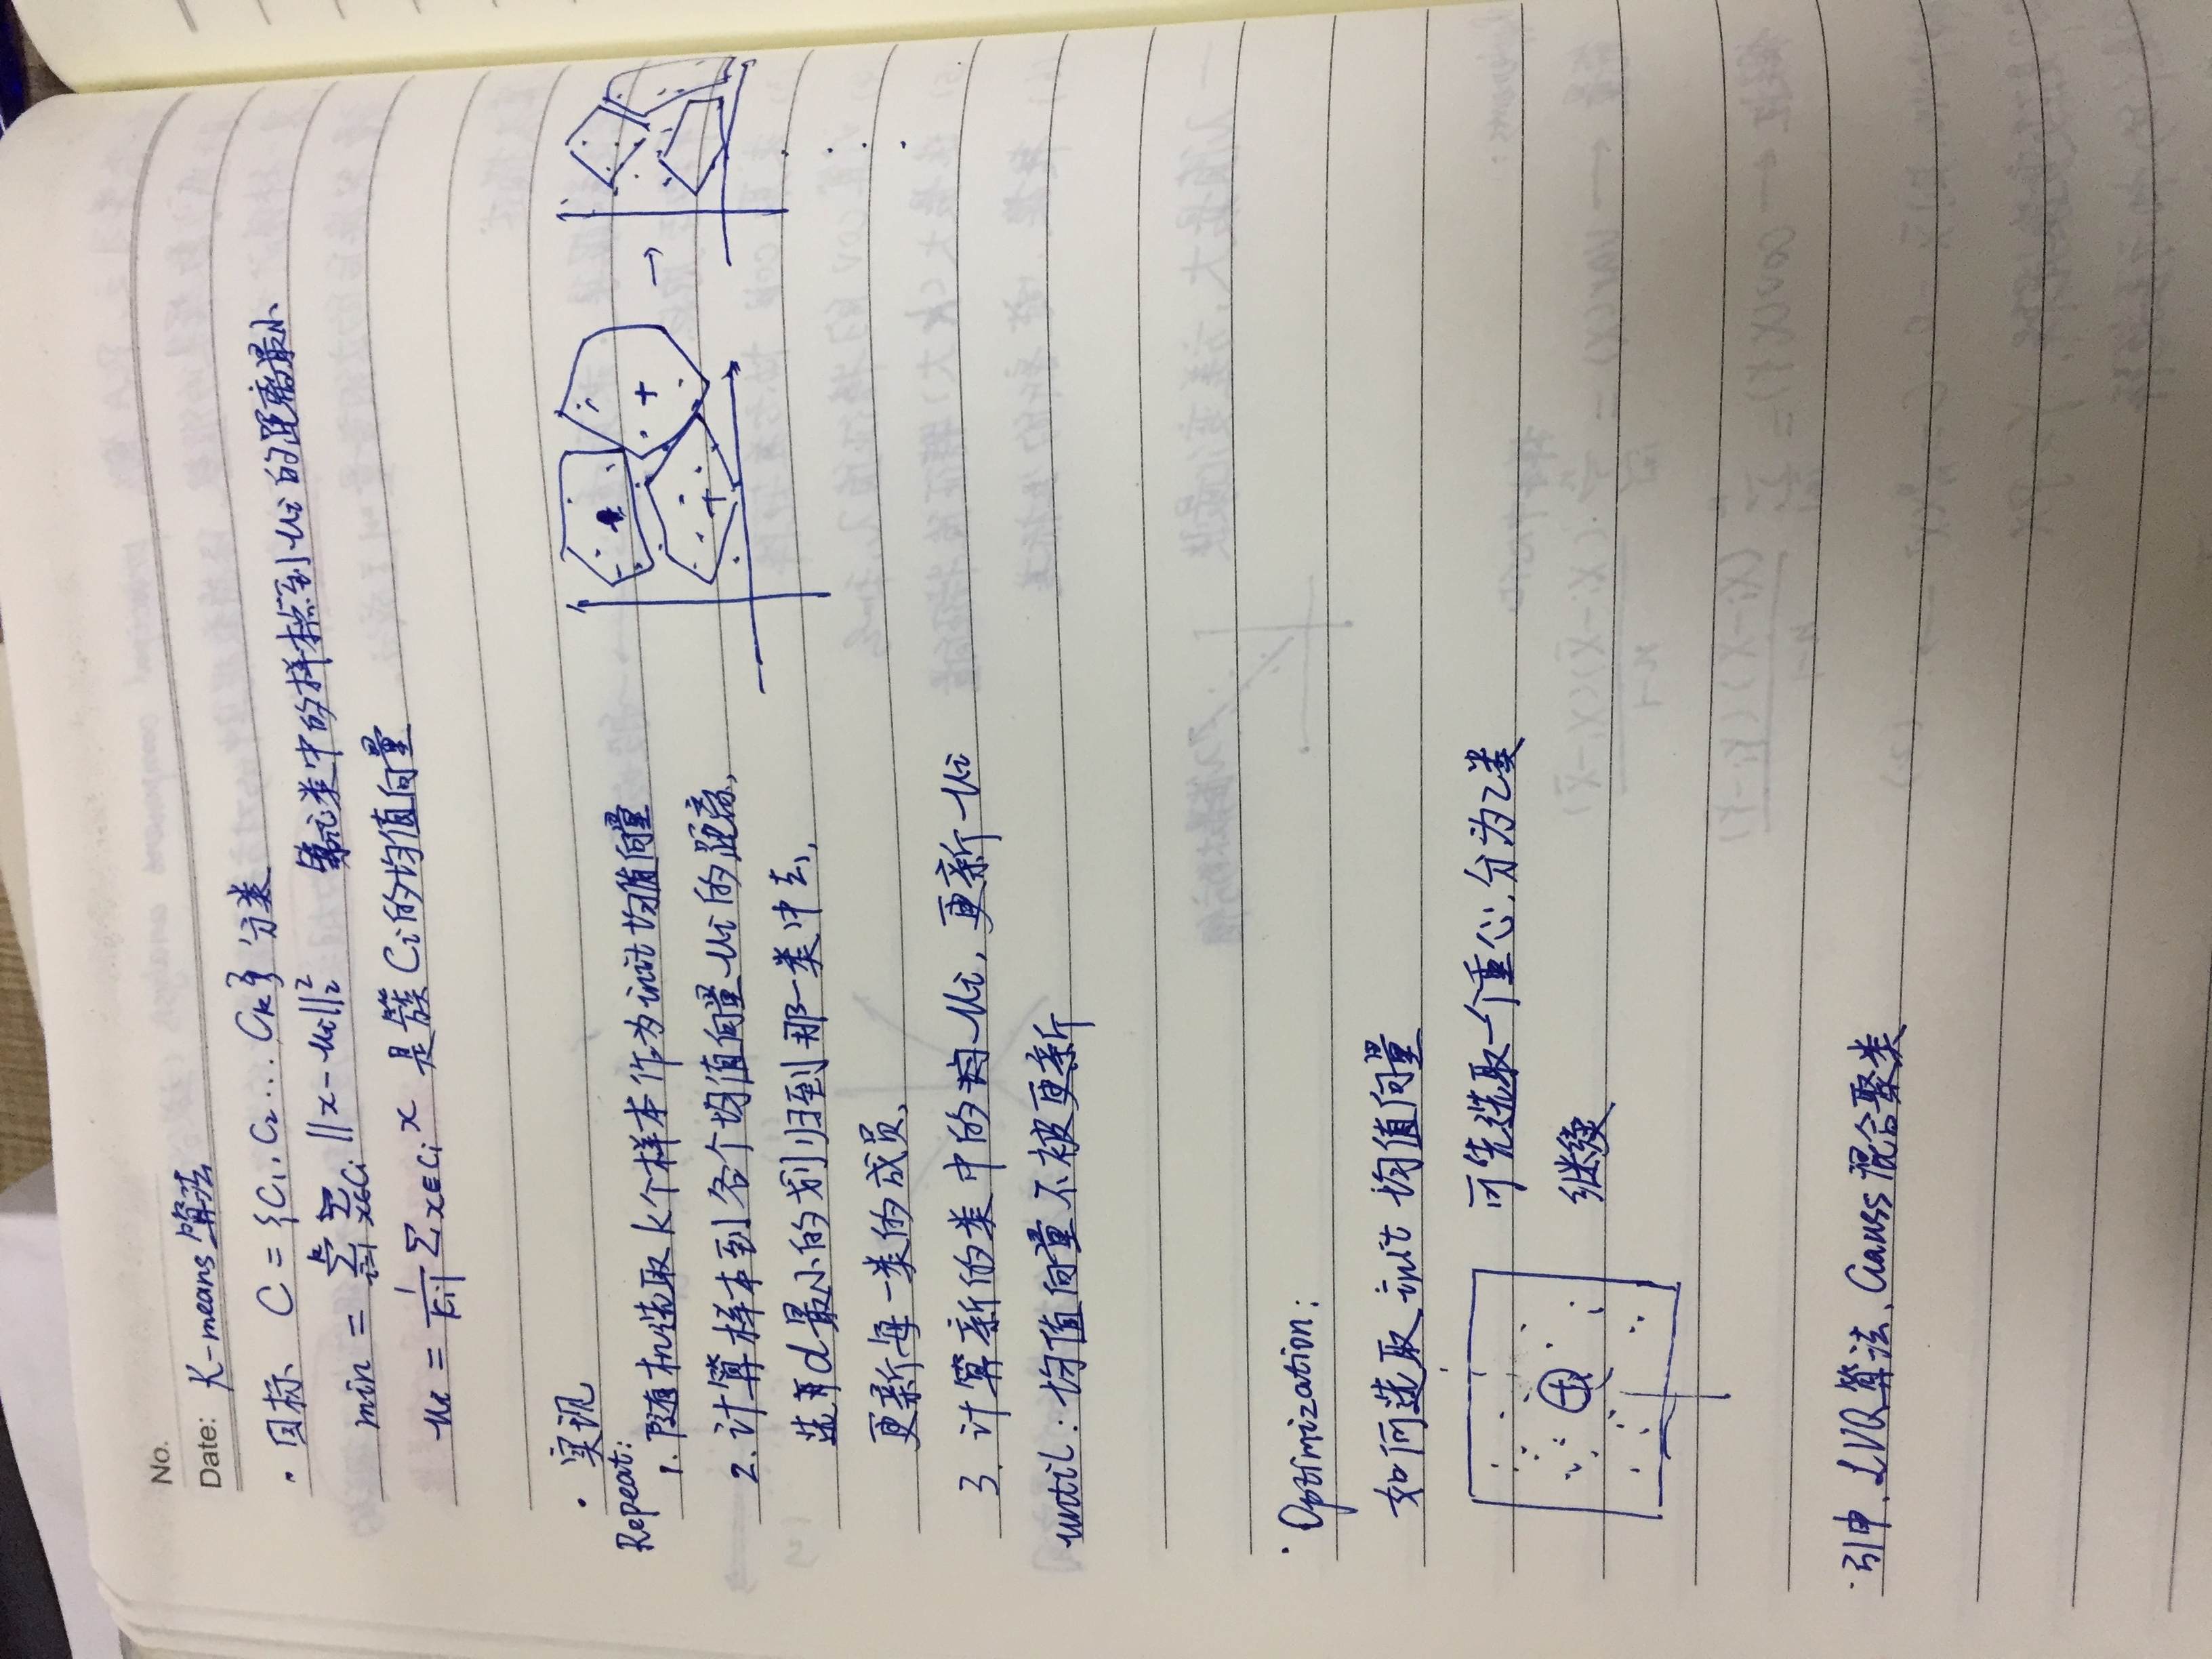 No.
Date: K-means 算法
· 目标 C = {C₁, C₂ ... Cₖ} 分类
min = Σᵢ₌₁ᵏ Σ_{x∈Cᵢ} ||x - uᵢ||₂² 第i类中的样本点到 uᵢ 的距离最小
uᵢ = 1/|Cᵢ| Σ_{x∈Cᵢ} x 是簇 Cᵢ 的均值向量
· 实现
Repeat:
1. 随机选取 k 个样本作为 init 均值向量
2. 计算样本到各个均值向量 uᵢ 的距离,
选 d 最小的划归到那一类中去,
更新每一类的成员,
3. 计算新的类中的 uᵢ, 更新 uᵢ
until: 均值向量不被更新
· Optimization:
如何选取 init 均值向量
可先选取一个重心, 分为2类
继续
· 引申. LVQ 算法、Gauss 混合聚类